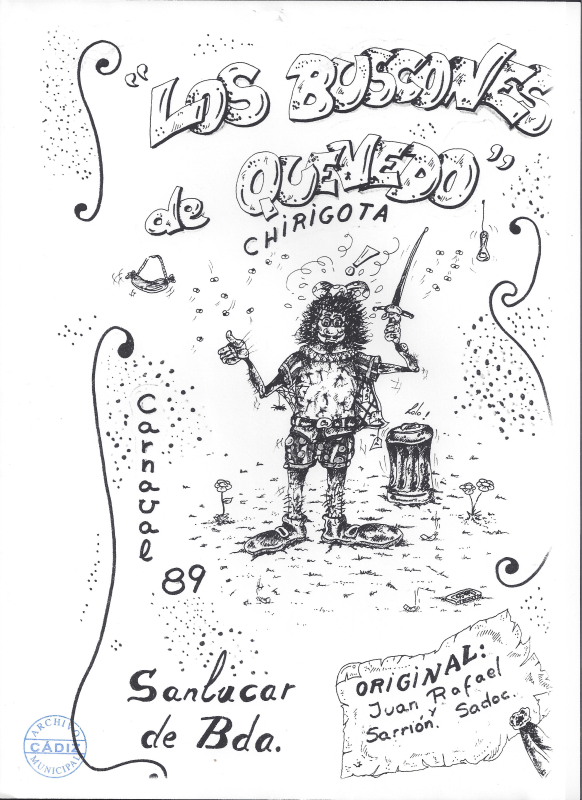 "LOS BUSCONES
de QUEVEDO"
CHIRIGOTA
Carnaval
89
Sanlucar
de Bda.
ORIGINAL:
Juan Rafael
y
Sarrión. Sadoc.
ARCHIVO
CÁDIZ
MUNICIPAL